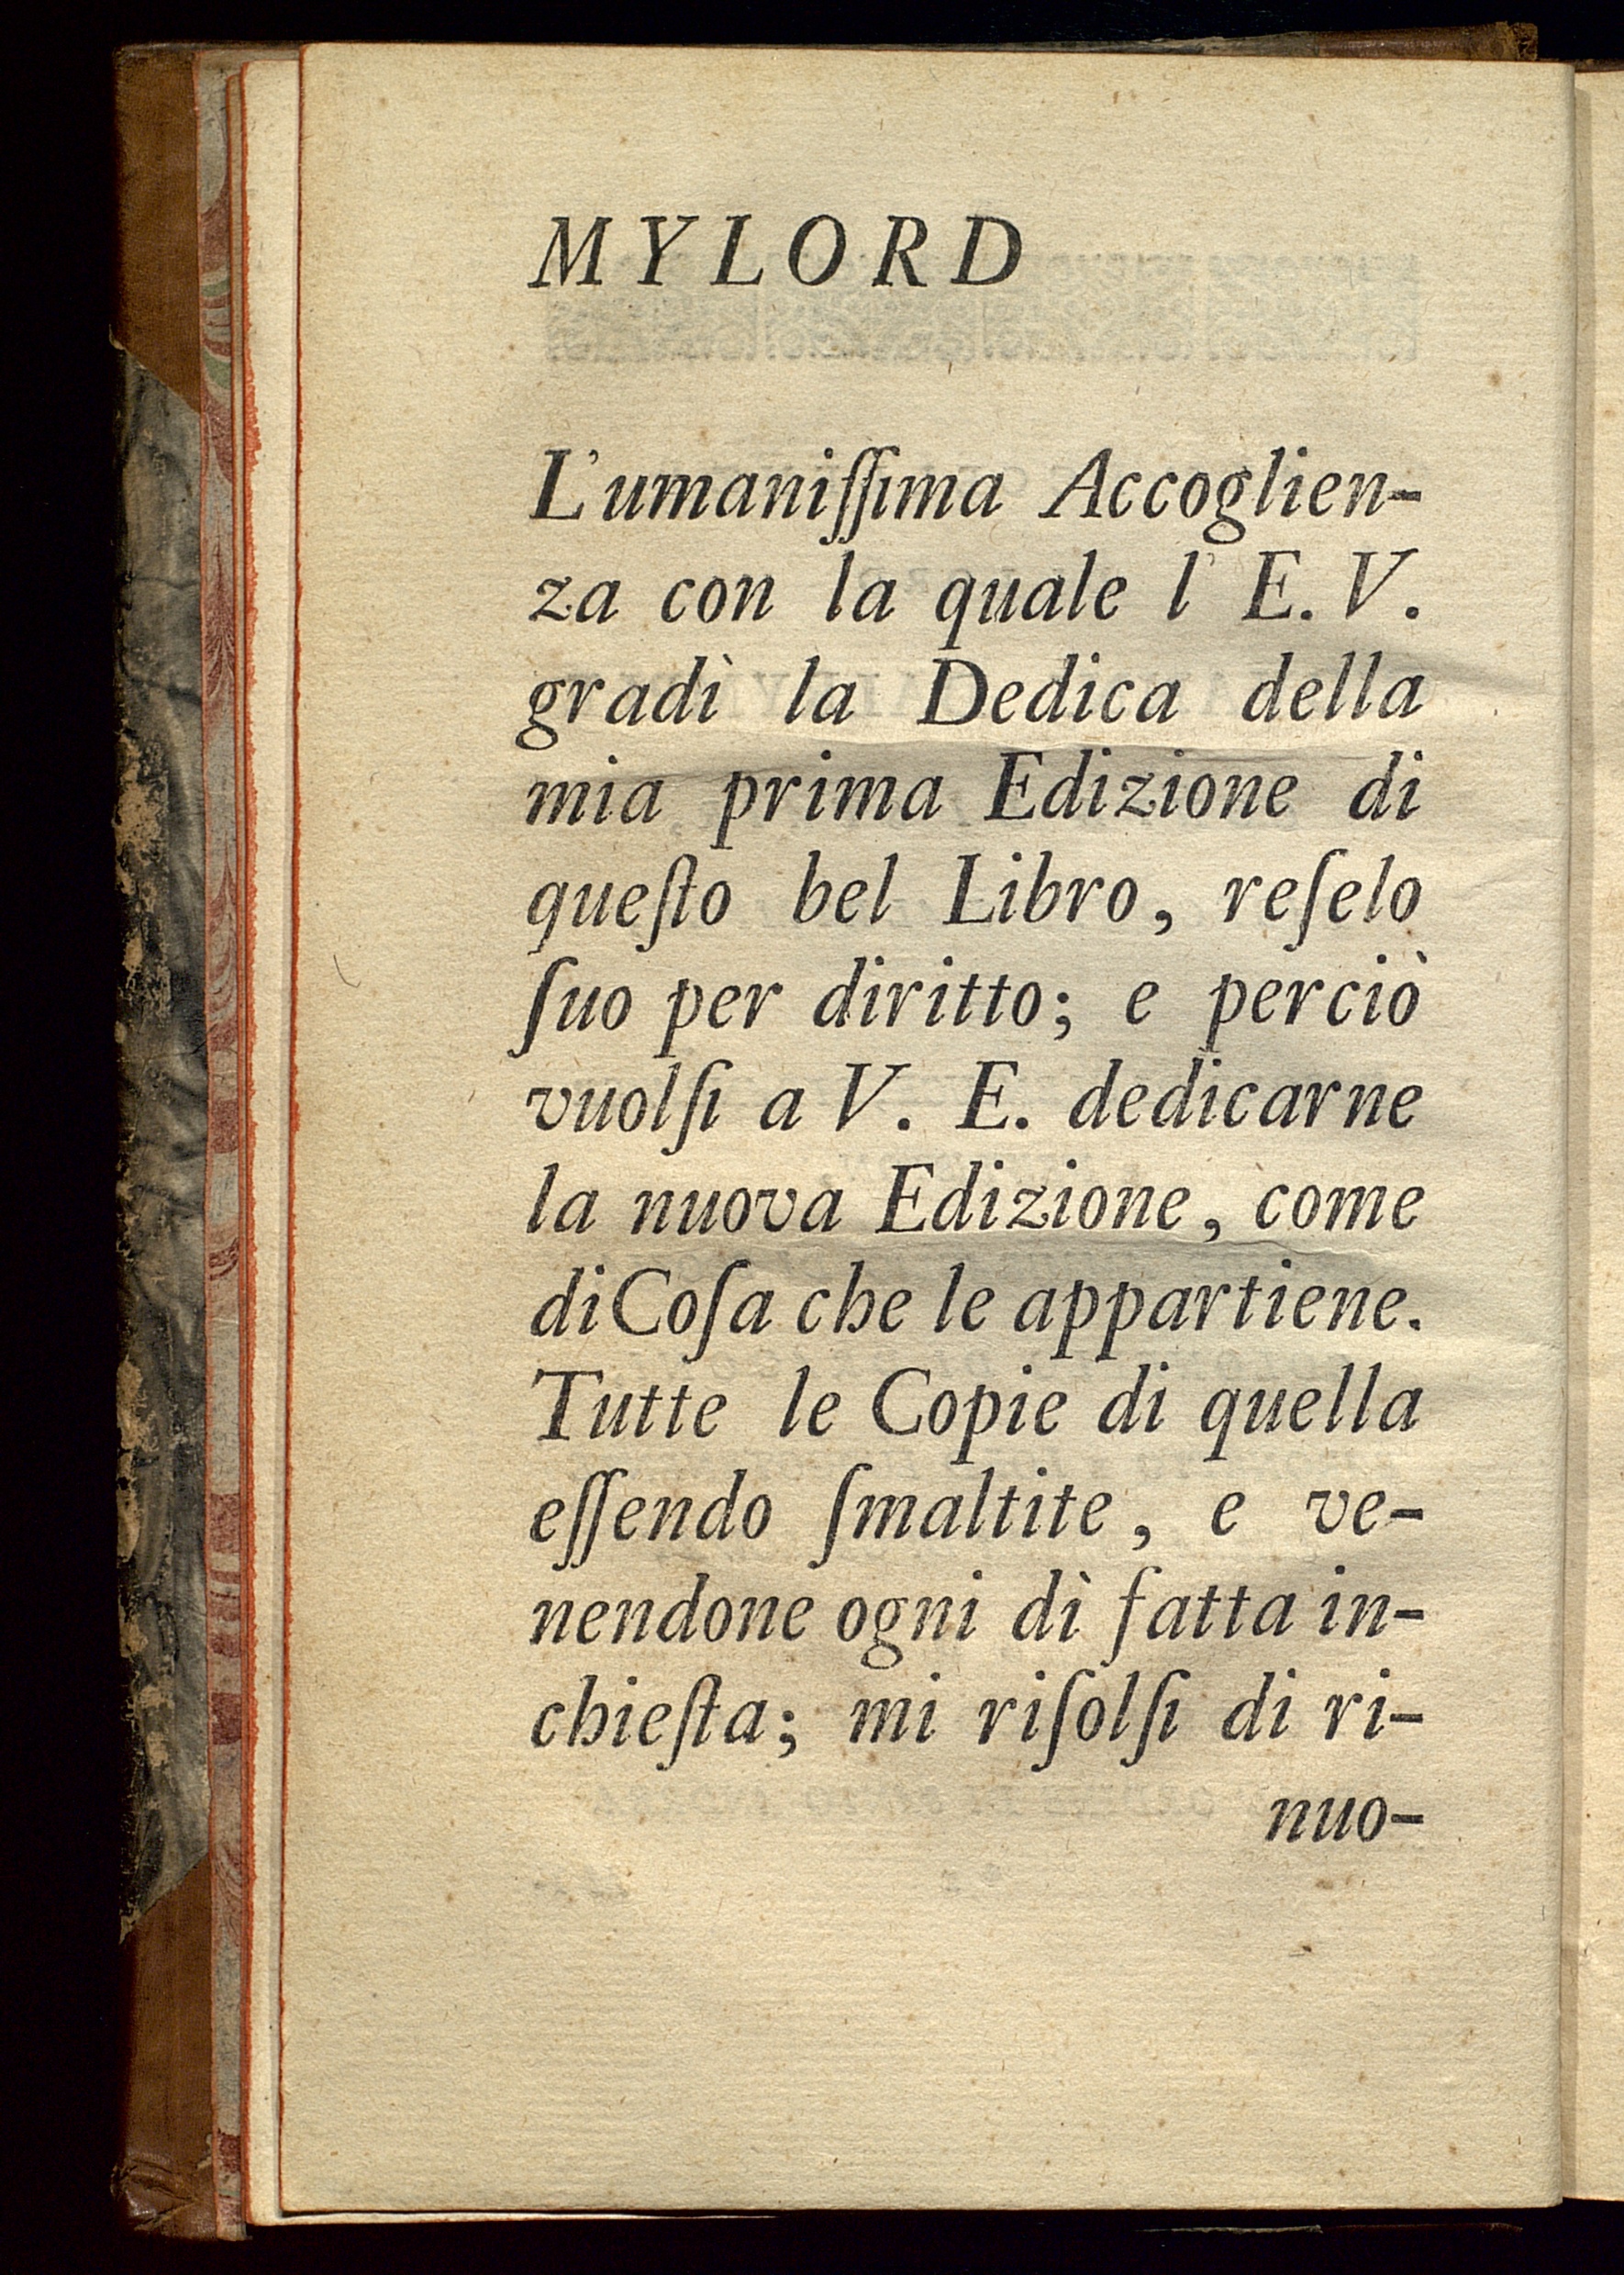 MYLORD
L'umaniſſima Accoglien-
za con la quale l' E. V.
gradì la Dedica della
mia prima Edizione di
queſto bel Libro, reſelo
ſuo per diritto; e perciò
vuolſi a V. E. dedicarne
la nuova Edizione, come
di Coſa che le appartiene.
Tutte le Copie di quella
eſſendo ſmaltite, e ve-
nendone ogni dì fatta in-
chieſta; mi riſolſi di ri-
nuo-